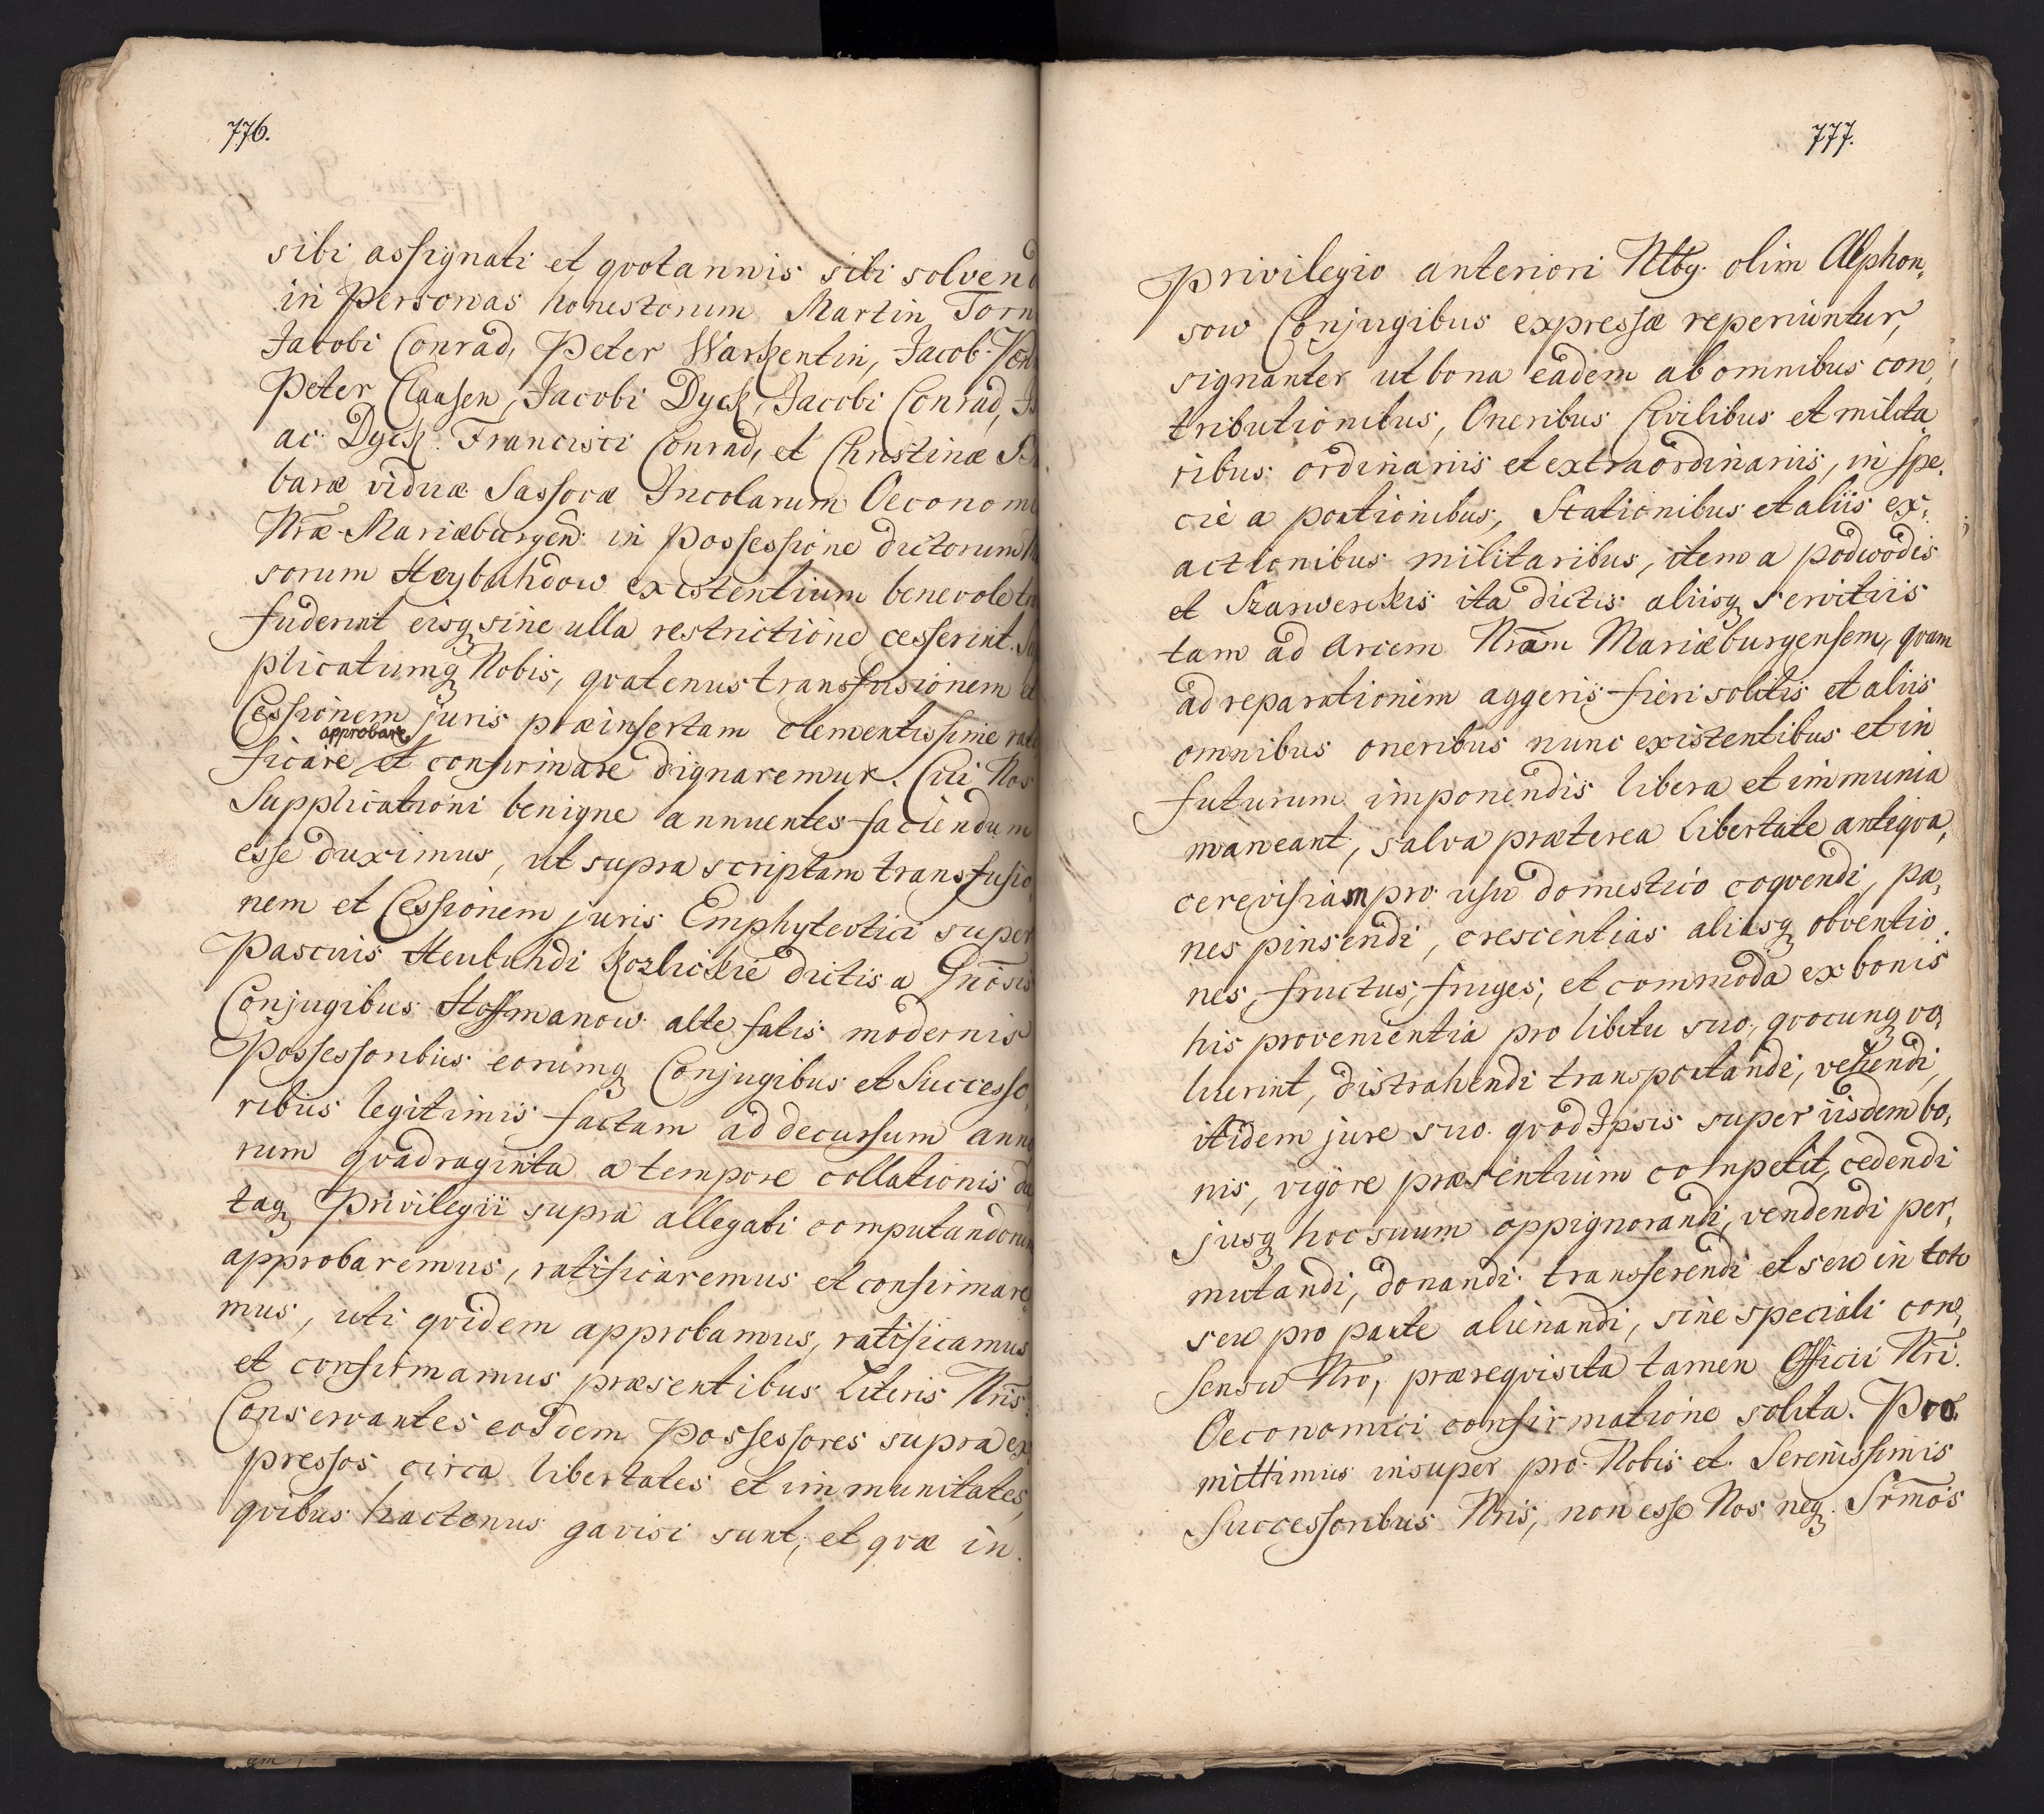 776.
sibi assignati et qvotannis sibi solvend
in Personas honestorum Martin Torn
Jacobi Conrad, Peter Warkentin, Jacob
Peter Claasen, Jacobi Dyck, Jacobi Conrad,
ac Dyck Francisci Conrad, et Christinæ
baræ viduæ Sassovæ Incolarum Oeconomi
Nr̃æ Mariæburgen: in Possessione dictorum
sorum Heybuhdow existentium benevole
fuderint eisq sine ulla restrictione cesserint.
plicatumq Nobis, qvatenus transfusionem et
Cessionem juris præinsertam clementissime rati
approbare
ficare et confirmare dignaremur. Cui Nos
Supplicationi benigne annuentes faciendum
esse duximus, ut supra scriptam transfusio
nem et Cessionem juris Emphytevtici super
Pascuis Heubuhdi Kozlickie dictis a Gñosis
Conjugibus Hoffmanow alte fatis modernis
Possessoribus eorumq Conjugibus et Successo,
ribus legitimis factam ad decursum anno
rum qvadraginta a tempore collationis da
taq Privilegii supra allegati computandorum
approbaremus, ratificaremus et confirmare,
mus, uti qvidem approbamus, ratificamus
et confirmamus præsentibus Literis Nr̃is.
Conservantes eosdem Possessores supra ex
pressos circa libertates et immunitates,
qvibus hactenus gavisi sunt, et qvæ in
777.
privilegio anteriori Nttbg: olim Alphon,
sow Conjugibus expressæ reperiuntur,
signanter ut bona eadem ab omnibus con,
tributionibus, Oneribus Civilibus et milita
ribus ordinariis et extraordinariis, in spe,
cie a portionibus, Stationibus et aliis ex,
actionibus militaribus, item a podwodis
et Szarwerckis ita dictis aliisq servitiis
tam ad arcem Nr̃am Mariæburgensem, qvam
ad reparationem aggeris fieri solitis et aliis
omnibus oneribus nunc existentibus et in
futurum imponendis libera et immunia
maneant, salva præterea Libertate antiqva,
cerevisiam pro usu domestico coqvendi, pa,
nes pinsendi, crescentias aliasq obventio
nes, fructus, fruges, et commoda ex bonis
his provenientia pro libitu suo, qvocunq vo,
luerint, distrahendi transportandi, vehendi,
itidem jure suo qvod Ipsis super iisdem bo,
nis, vigore præsentium competit, cedendi
jusq hoc suum oppignorandi, vendendi per,
mutandi, donandi transferendi et seu in toto
seu pro parte alienandi, sine speciali con,
sensu Nr̃o, præreqvisita tamen Officii Nr̃i
Oeconomici confirmatione solita. Pro,
mittimus insuper pro Nobis et Serenissimis
Successoribus Nr̃is, non esse Nos neq Sr̃mos